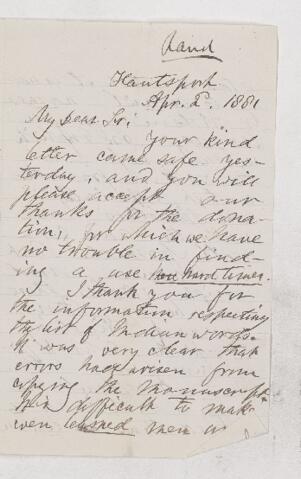 Rand
Hantsport
Apr. 2. 1881
My Dear Sir;
Your kind
letter came safe yes-
terday, and you will
please accept our
thanks for the dona-
tion, for which we have
no trouble in find-
ing a use these hard times.
I thank you for
the information respecting
the list of Indian words.
It was very clear that
errors had arisen from
copying the manuscript.
It is difficult to make
even learned men